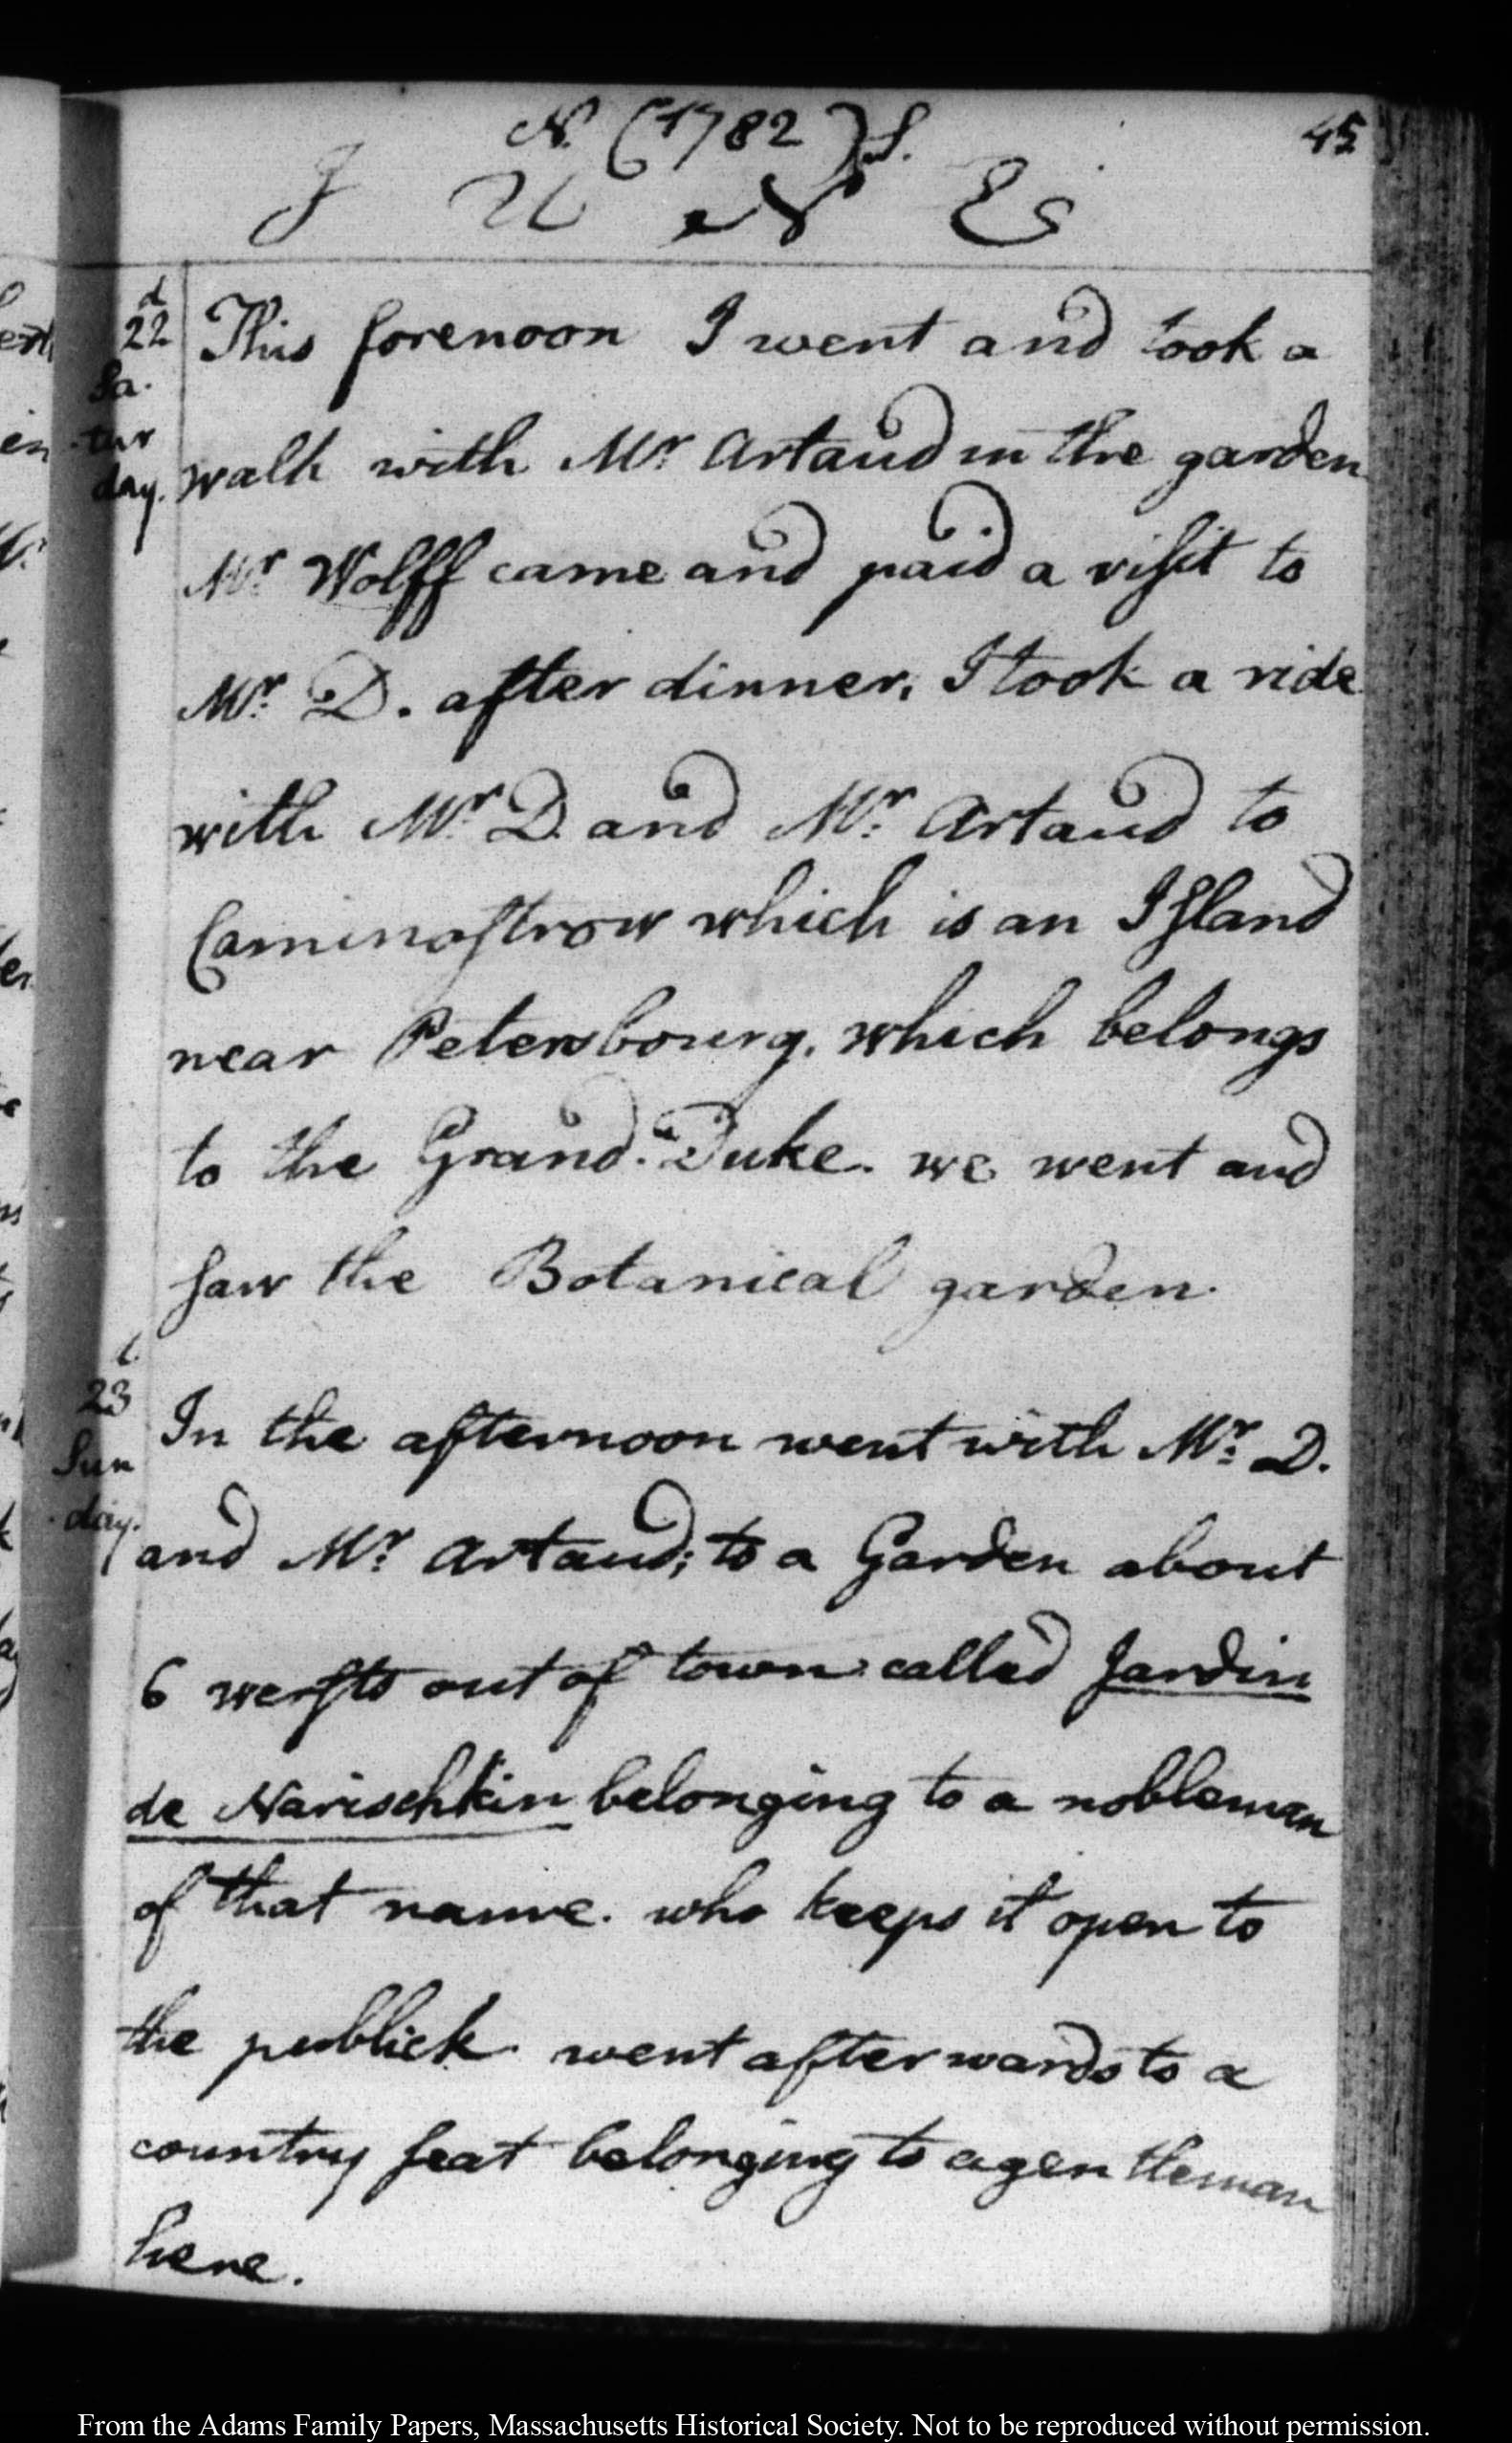 N. (1782) S.
45
J U N E
d
22
Sa.
tur
day.
This forenoon I went and took a
walk with Mr. Artaud in the garden
Mr. Wolff came and paid a visit to
Mr. D. after dinner, I took a ride
with Mr. D. and Mr. Artaud to
Caminostrow which is an Island
near Petersbourg, which belongs
to the Grand. Duke. we went and
saw the Botanical garden.
23
Sun
day.
In the afternoon went with Mr. D.
and Mr. Artaud; to a Garden about
6 wersts out of town called Jardin
de Narischkin belonging to a nobleman
of that name. who keeps it open to
the publick. went afterwards to a
country seat belonging to a gentleman
here.
From the Adams Family Papers, Massachusetts Historical Society. Not to be reproduced without permission.